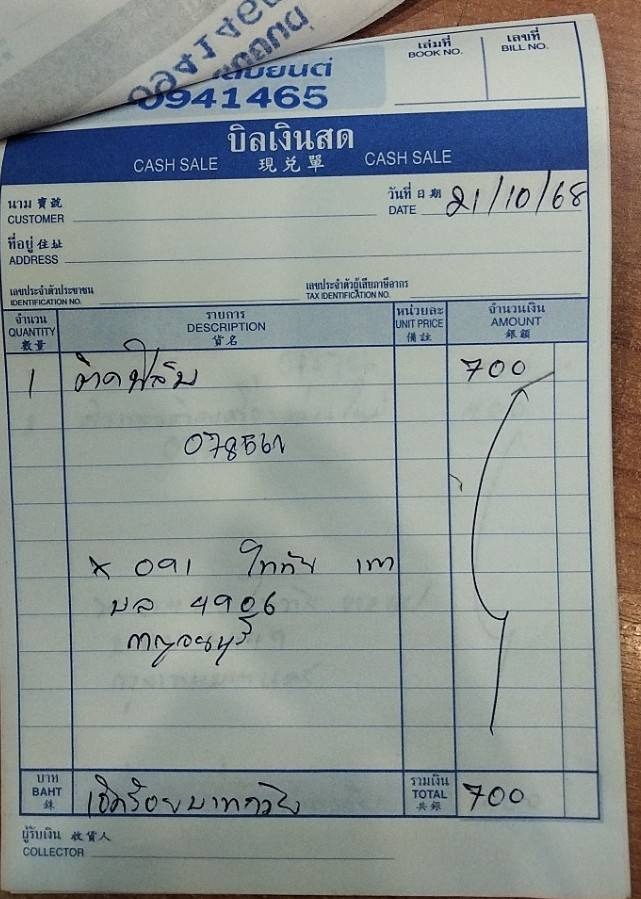 0941465
เล่มที่
BOOK NO.
เลขที่
BILL NO.
บิลเงินสด
CASH SALE 現兌單 CASH SALE
นาม 寶號
CUSTOMER
วันที่ 日期
DATE 21/10/68
ที่อยู่ 住址
ADDRESS
เลขประจำตัวประชาชน
IDENTIFICATION NO.
เลขประจำตัวผู้เสียภาษีอากร
TAX IDENTIFICATION NO.
จำนวน
QUANTITY
數量
รายการ
DESCRIPTION
貨名
หน่วยละ
UNIT PRICE
備註
จำนวนเงิน
AMOUNT
銀額
1 700
* 091
บล 4906
กาญจนบุรี
บาท
BAHT
銖
เจ็ดร้อยบาทถ้วน
รวมเงิน
TOTAL
共銀
700
ผู้รับเงิน 收貨人
COLLECTOR